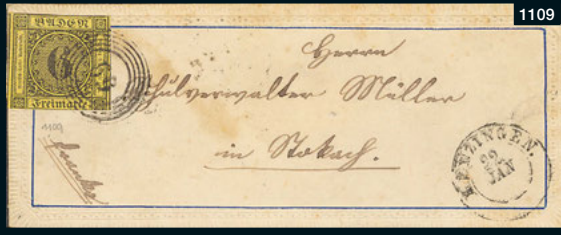 1109
BADEN
6
Freimarke
Herrn
Schulverwalter Müller
1109
in Stokach.
franko
KENZINGEN.
22
JAN